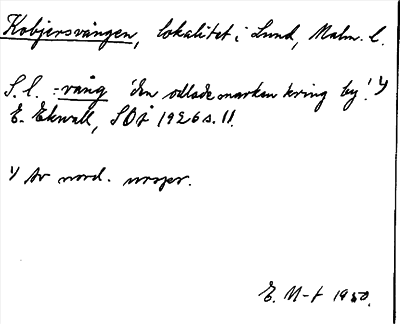 Kobjersvången, lokalitet i Lund, Malm. l.
S. l. =vång 'den odlade marken kring by'. 1)
E. Ekwall, SOÅ 1926 s. 11.
1) Av nord. urspr.
E. N-t 1950.